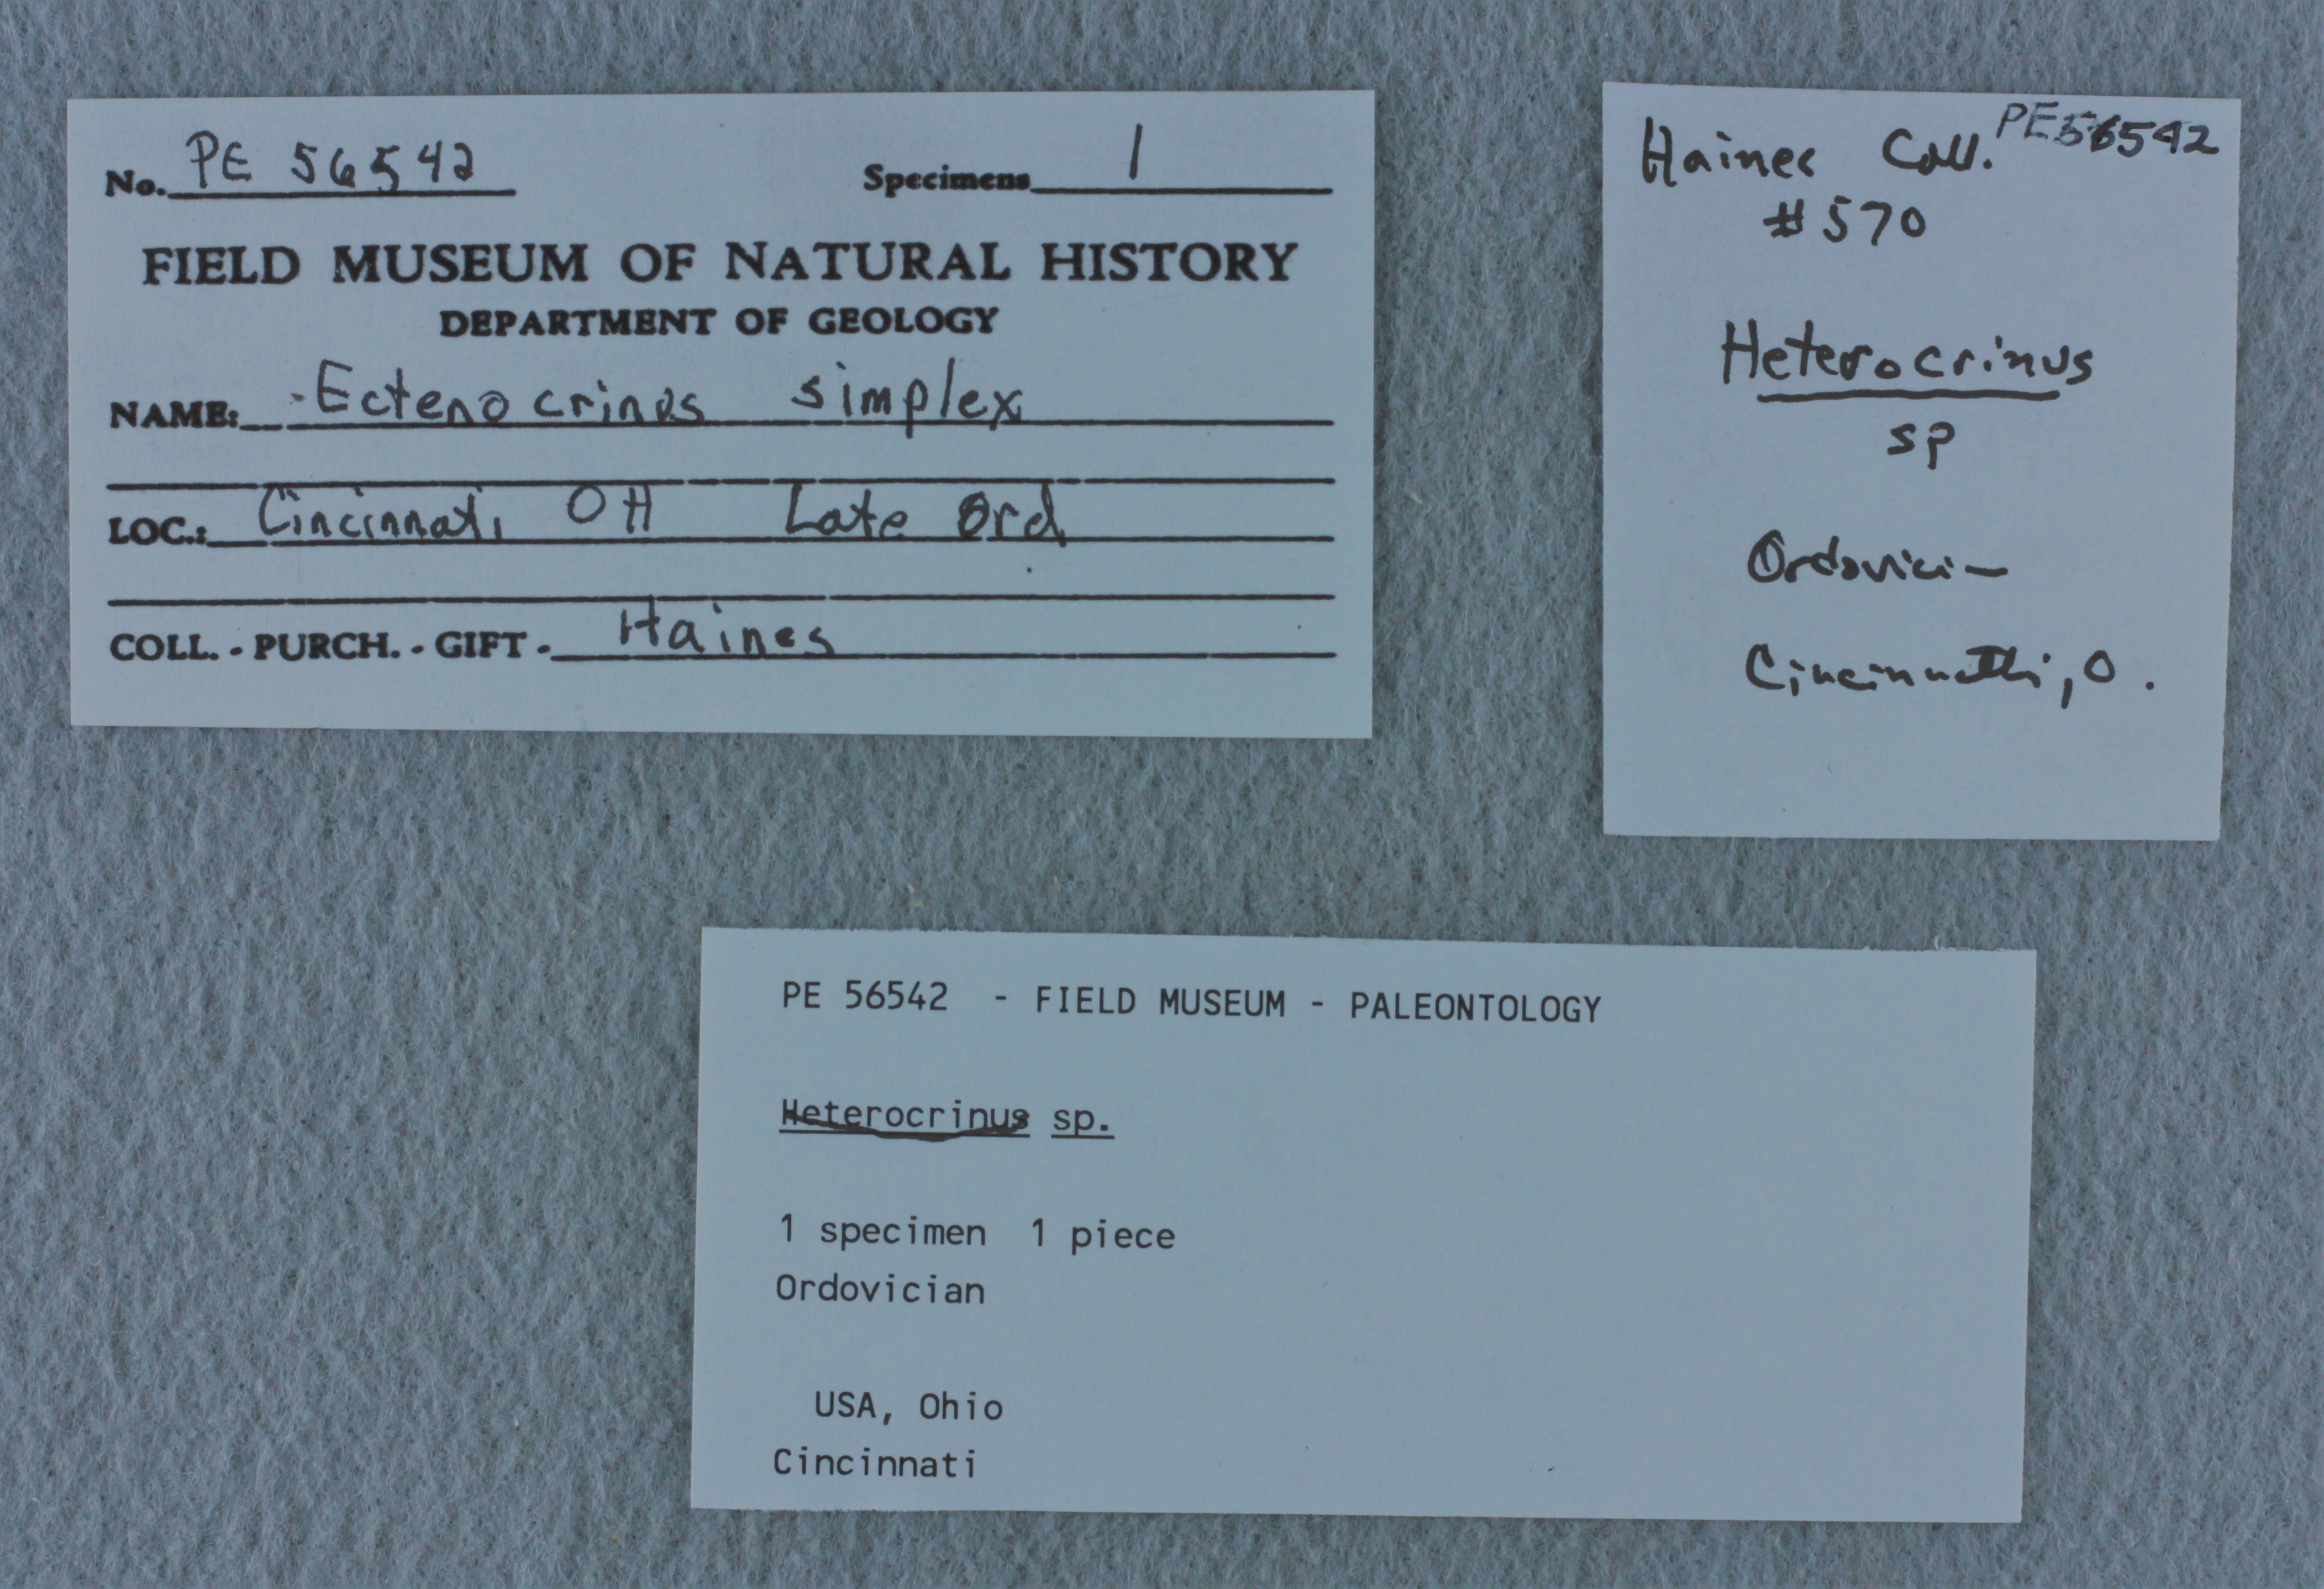 No. PE 56542 Specimens 1
FIELD MUSEUM OF NATURAL HISTORY
DEPARTMENT OF GEOLOGY
NAME: Ectenocrinus simplex
LOC.: Cincinnati OH Late Ord
COLL. - PURCH. - GIFT - Haines
Haines Coll. PE56542
#570
Heterocrinus
sp
Ordovici—
Cincinnatti, O.
PE 56542 - FIELD MUSEUM - PALEONTOLOGY
Heterocrinus sp.
1 specimen 1 piece
Ordovician
USA, Ohio
Cincinnati